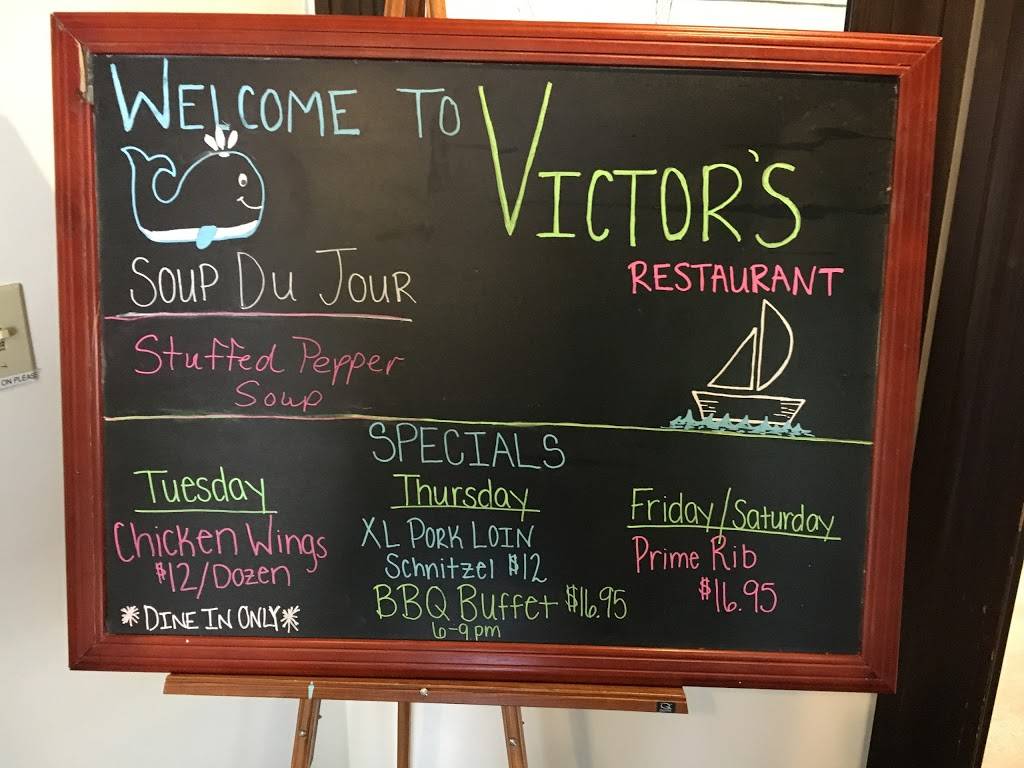 WELCOME TO VICTOR'S
RESTAURANT
SOUP DU JOUR
Stuffed Pepper
Soup
SPECIALS
Tuesday
Chicken Wings
$12/Dozen
*DINE IN ONLY*
Thursday
XL PORK LOIN
Schnitzel $12
BBQ Buffet $16.95
6-9pm
Friday/Saturday
Prime Rib
$16.95
ON PLEASE